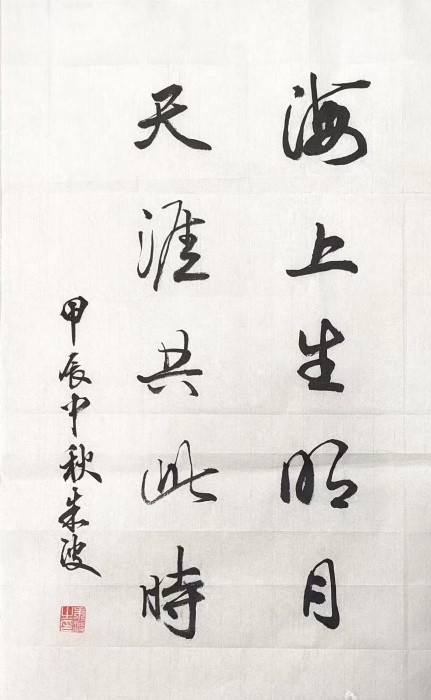 海上生明月
天涯共此時
甲辰中秋朱波